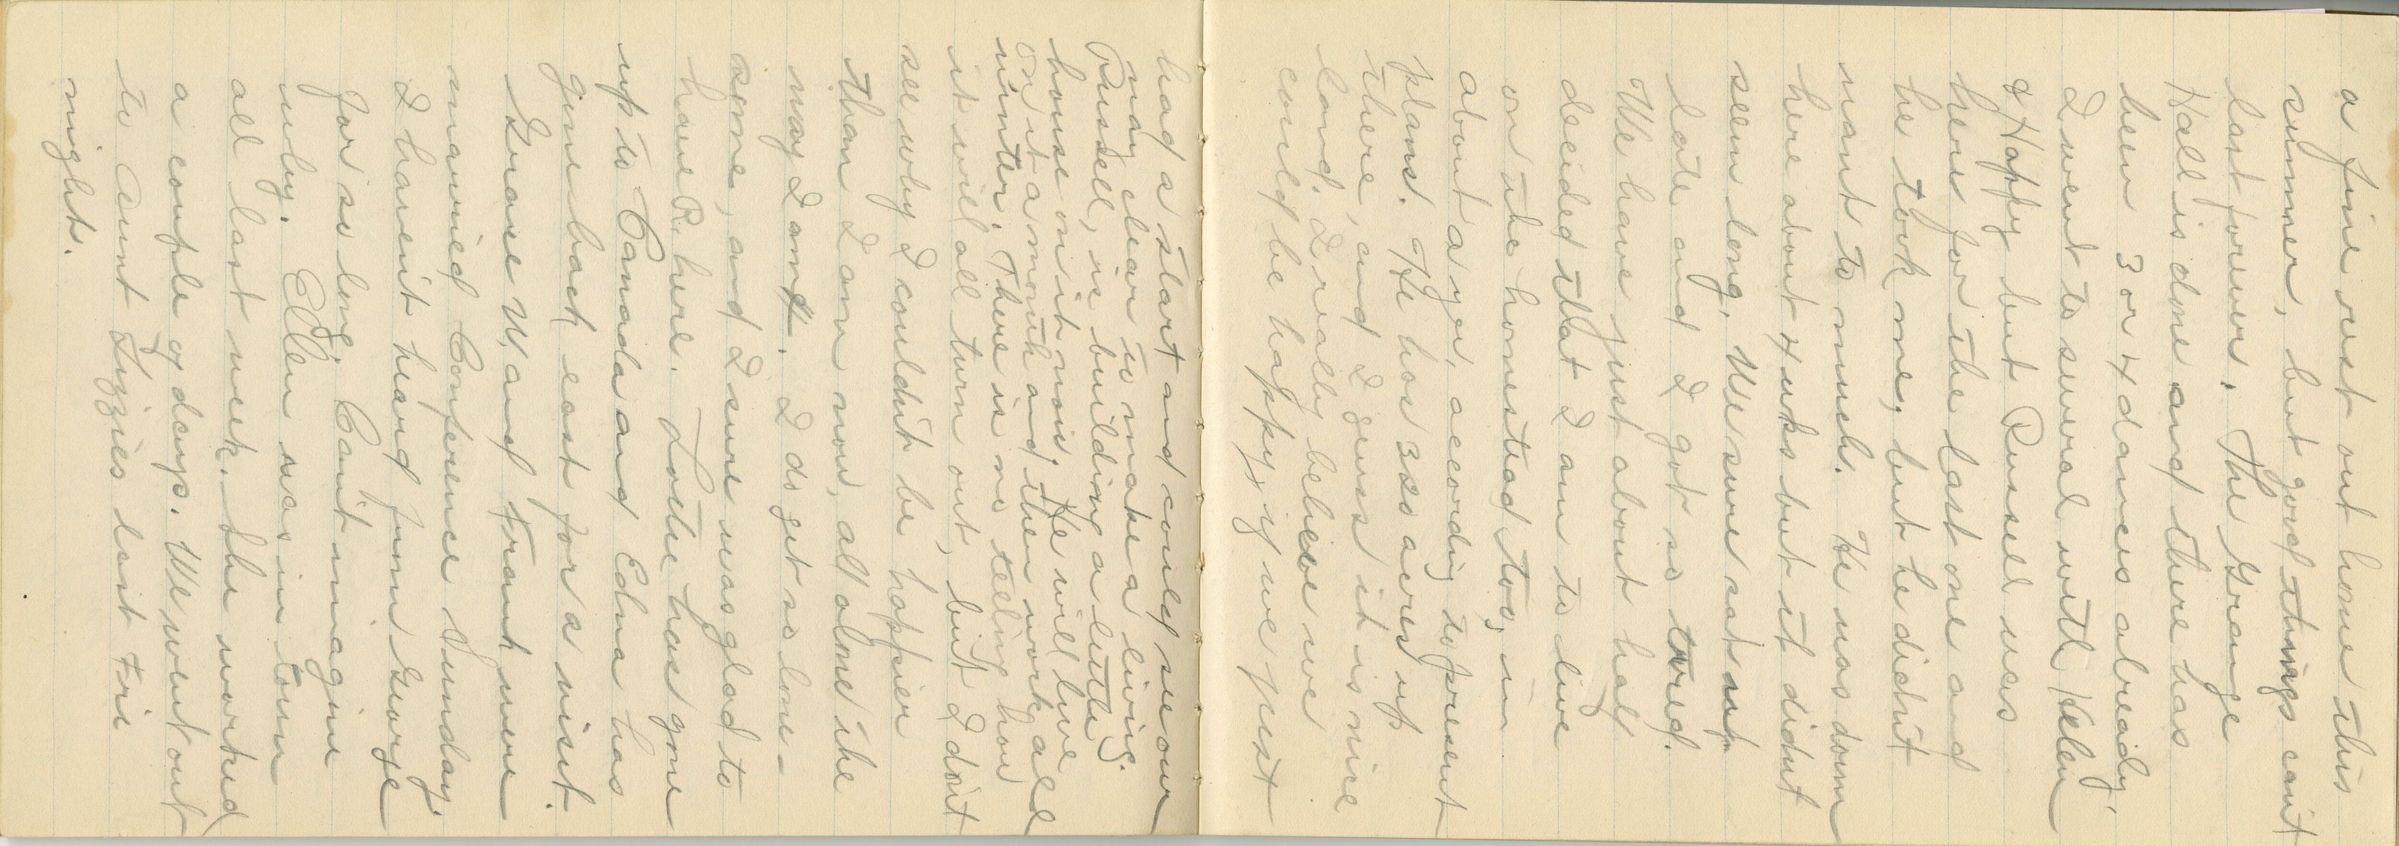 a fine rest out home this
summer, but good things can't
last forever. The Grange
Hall is done and there has
been 3 or 4 dances already,
I went to several with Helen
& Happy but Russell was
here for the last one and
he took me, but he didn't
want to much. He was down
here about 4 wks but it didnt
seem long. We sure sat up
late and I got so tired.
We have just about half
decided that I am to live
on the homestead too, in
about a yr, according to present
plans. He has 320 acres up
there, and I guess it is nice
land. I really believe we
could be happy, if we just
had a start and could see our
way clear to make a living.
Russell, is building a little
house on it now, He will live
on it a month and then work all
winter. There is no telling how
it will all turn out, but I don't
see why I couldn't be happier
than I am now, all alone the
way I am. I do get so lone-
some, and I sure was glad to
have R. here. Lottie has gone
up to Canada and Edna has
gone back east for a visit.
Grace W, and Frank were
married Conference Sunday.
I haven't heard from George
for so long. Can't imagine
why. Ellen was in town
all last week. She worked
a couple of days. We went out
to Aunt Lizzies last Fri
night.